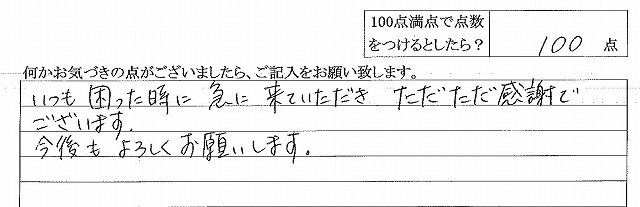 100点満点で点数
をつけるとしたら? 100 点
何かお気づきの点がございましたら、ご記入をお願い致します。
いつも 困った時に 急に 来ていただき ただただ感謝で
ございます.
今後も よろしく お願いします。